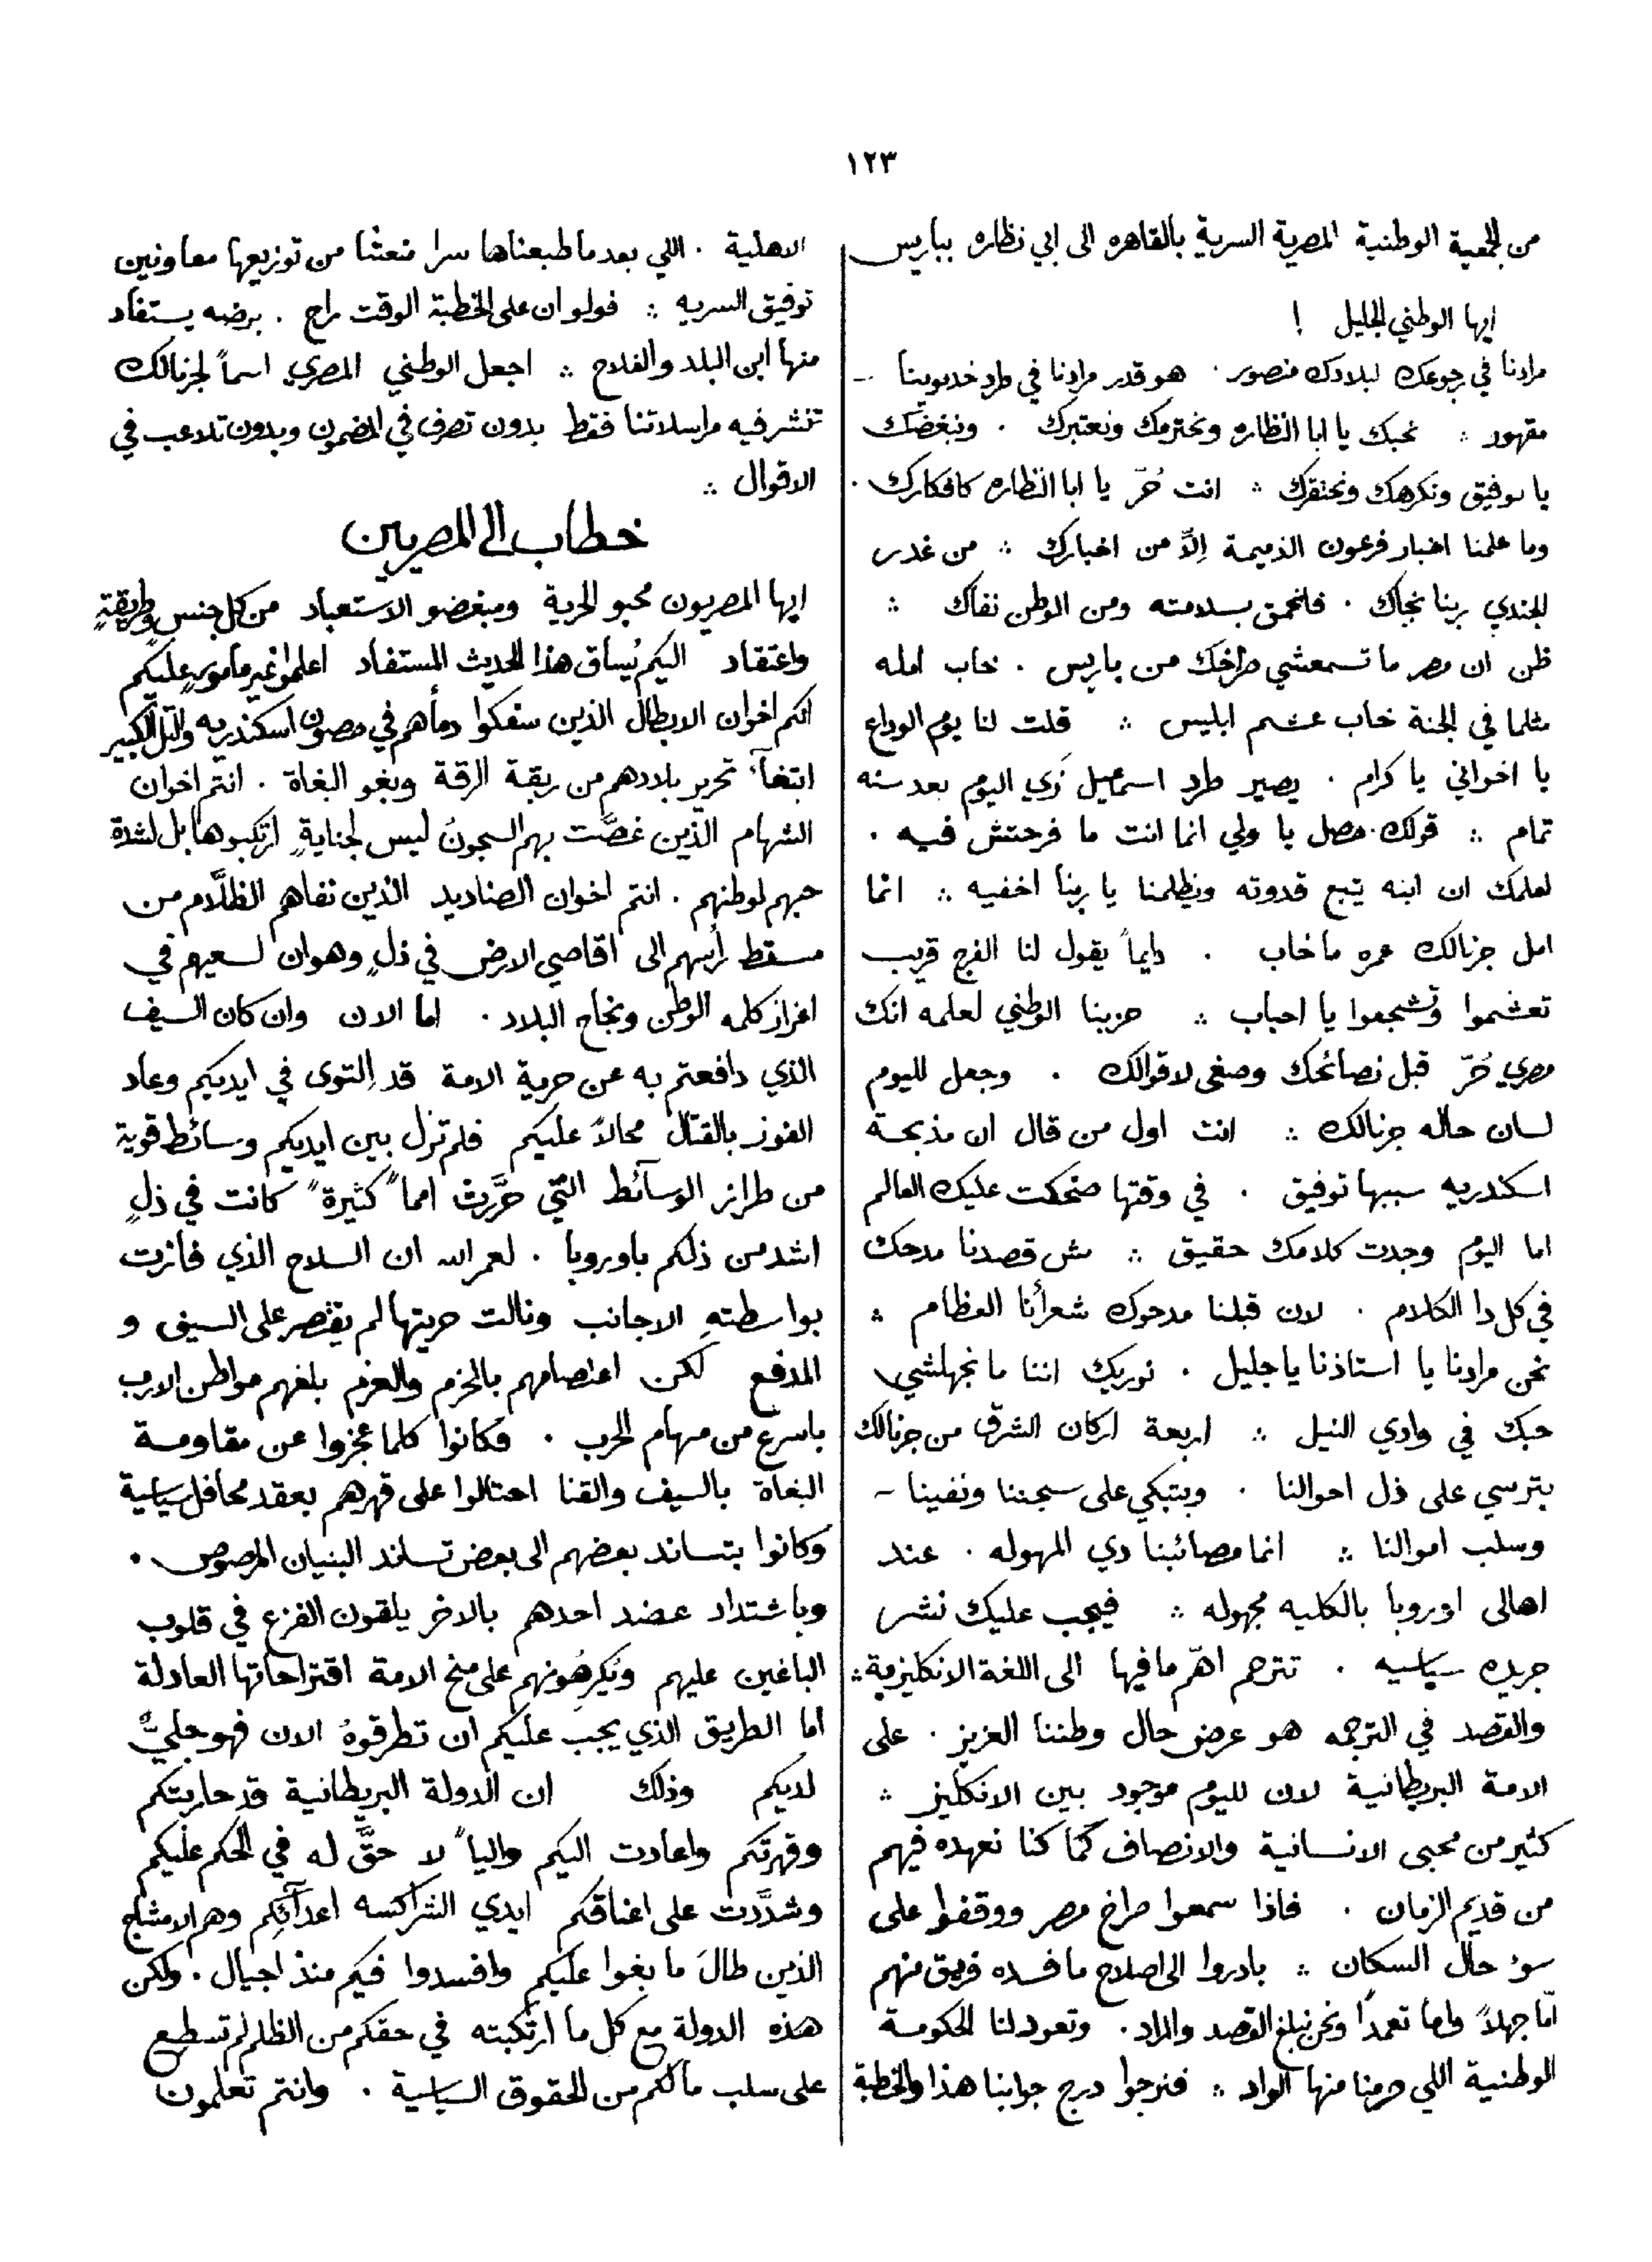 ١٢٣
من الجمعية الوطنية المصرية السرية بالقاهره الى ابي نظاره بباريس
ايها الوطني الجليل !
مرادنا في رجوعك لبلادك منصور . هو قدر مرادنا في طرد خديوينا -
مقهور ؞ نحبك يا ابا النظاره ونحترمك ونعتبرك . ونبغضك
يا توفيق ونكرهك ونحتقرك ؞ انت حُرّ يا ابا النظاره كافكارك .
وما علمنا اخبار فرعون الذميمة اِلاَّ من اخبارك ؞ من غدر
الجندي ربنا نجاك . فانحمق بسلامته ومن الوطن نفاك ؞
ظن ان مصر ما تسمعشي صراخك من باريس . خاب امله
مثلما في الجنة خاب عشم ابليس ؞ قلت لنا يوم الوداع
يا اخواني يا كرام . يصير طرد اسمعيل زي اليوم بعد سنه
تمام ؞ قولك حصل يا ولي انما انت ما فرحتش فيه .
لعلمك ان ابنه يتبع قدوته ويظلمنا يا ربنا اخفيه ؞ انما
امل جرنالك عمره ما خاب . دايماً يقول لنا الفرج قريب
تعشموا وتشجعوا يا احباب ؞ حزبنا الوطني لعلمه انك
مصري حُرّ قبل نصائحك وصغى لاقوالك . وجعل لليوم
لسان حاله جرنالك ؞ انت اول من قال ان مذبحة
اسكندريه سببها توفيق . في وقتها ضحكت عليك العالم
اما اليوم وجدت كلامك حقيق ؞ مش قصدنا مدحك
في كل دا الكلام . لان قبلنا مدحوك شعرأنا العظام ؞
نحن مرادنا يا استاذنا يا جليل . نوريك اننا ما نجهلشي
حبك في وادي النيل ؞ اربعة اركان الشرق من جرنالك
بترسي على ذل احوالنا . وبتبكي على سجننا ونفينا -
وسلب اموالنا ؞ انما مصائبنا دي المهوله . عند
اهالى اوروبا بالكليه مجهوله ؞ فيجب عليك نشر
جريده سياسيه . تترجم اهمّ ما فيها الى اللغة الانكليزية ؞
والقصد في الترجمه هو عرض حال وطننا العزيز . على
الامة البريطانية لان لليوم موجود بين الانكليز ؞
كثير من محبى الانسانية والانصاف كما كنا نعهده فيهم
من قديم الزمان . فاذا سمعوا صراخ مصر ووقفوا على
سوء حال السكان ؞ بادروا الى اصلاح ما فسده فريق منهم
امّا جهلاً واما تعمداً ونحن نبلغ القصد والمراد . وتعود لنا الحكومة
الوطنية اللي حرمنا منها الواد ؞ فنرجوا درج جوابنا هذا والخطبة
الاهلية . اللي بعد ما طبعناها سرا منعتنا من توزيعها معاونين
توفيق السريه ؞ فولو ان على الخطبة الوقت راح . برضه يستفاد
منها ابن البلد والفلاح ؞ اجعل الوطني المصري اسماً لجرنالك
تنشر فيه مراسلاتنا فقط بدون تصرف في المضمون وبدون تلاعب في
الاقوال ؞
خطاب الى المصريين
ايها المصريون محبو الحرية ومبغضو الاستعباد من كل جنسٍ وطريقةٍ
واعتقاد اليكم يُساق هذا الحديث المستفاد اعلموا غير مأمورٍ عليكم
انكم اخوان الابطال الذين سفكوا دمأهم في حصون اسكندريه والتل الكبير
ابتغآء تحرير بلادهم من ربقة الرقة وبغو البغاة . انتم اخوان
الشهام الذين غصَّت بهم السجونُ ليس لجنايةٍ ارتكبوها بل لشدة
حبهم لوطنهم . انتم اخوان الصناديد الذين نفاهم الظلَّام من
مسقط رأسهم الى اقاصي الارض في ذلٍ وهوان لسعيهم في
اعزاز كلمه الوطن ونجاح البلاد . اما الان وان كان السيف
الذي دافعتم به عن حرية الامة قد اِلتوى في ايديكم وعاد
الفوز بالقتال محالاً عليكم فلم تزل بين ايديكم وسائط قوية
من طراز الوسآئط التي حرَّرت امماً كثيرةً كانت في ذلٍ
اشد من ذلكم باوروبا . لعمر الله ان السلاح الذي فازت
بواسطتهِ الاجانب ونالت حريتها لم يقتصر على السيف و
المدفع لكن اعتصامهم بالحزم والعزم بلغهم مواطن الارب
باسرع من سهام الحرب . فكانوا كلما عجزوا عن مقاومة
البغاة بالسيف والقنا احتالوا على قهرهم بعقد محافل سياسية
وكانوا يتساند بعضهم الى بعض تساند البنيان المرصوص .
وباشتداد عضد احدهم بالاخر يلقون الفزع في قلوب
الباغين عليهم ويُكرِهُونهم على منح الامة اقتراحاتها العادلة
اما الطريق الذي يجب عليكم ان تطرقوهُ الان فهو جليٌّ
لديكم وذلك ان الدولة البريطانية قد حاربتكم
وقهرتكم واعادت اليكم والياً لا حقَّ له في الحكم عليكم
وشدَّدت على اعناقكم ايدي الشراكسه اعدآئكم وهم الامشاج
الذين طالَ ما بغوا عليكم وافسدوا فيكم منذ اجيال . ولكن
هذه الدولة مع كل ما ارتكبته في حقكم من الظلم لم تسطع
على سلب مالكم من الحقوق السياسية . وانتم تعلمون